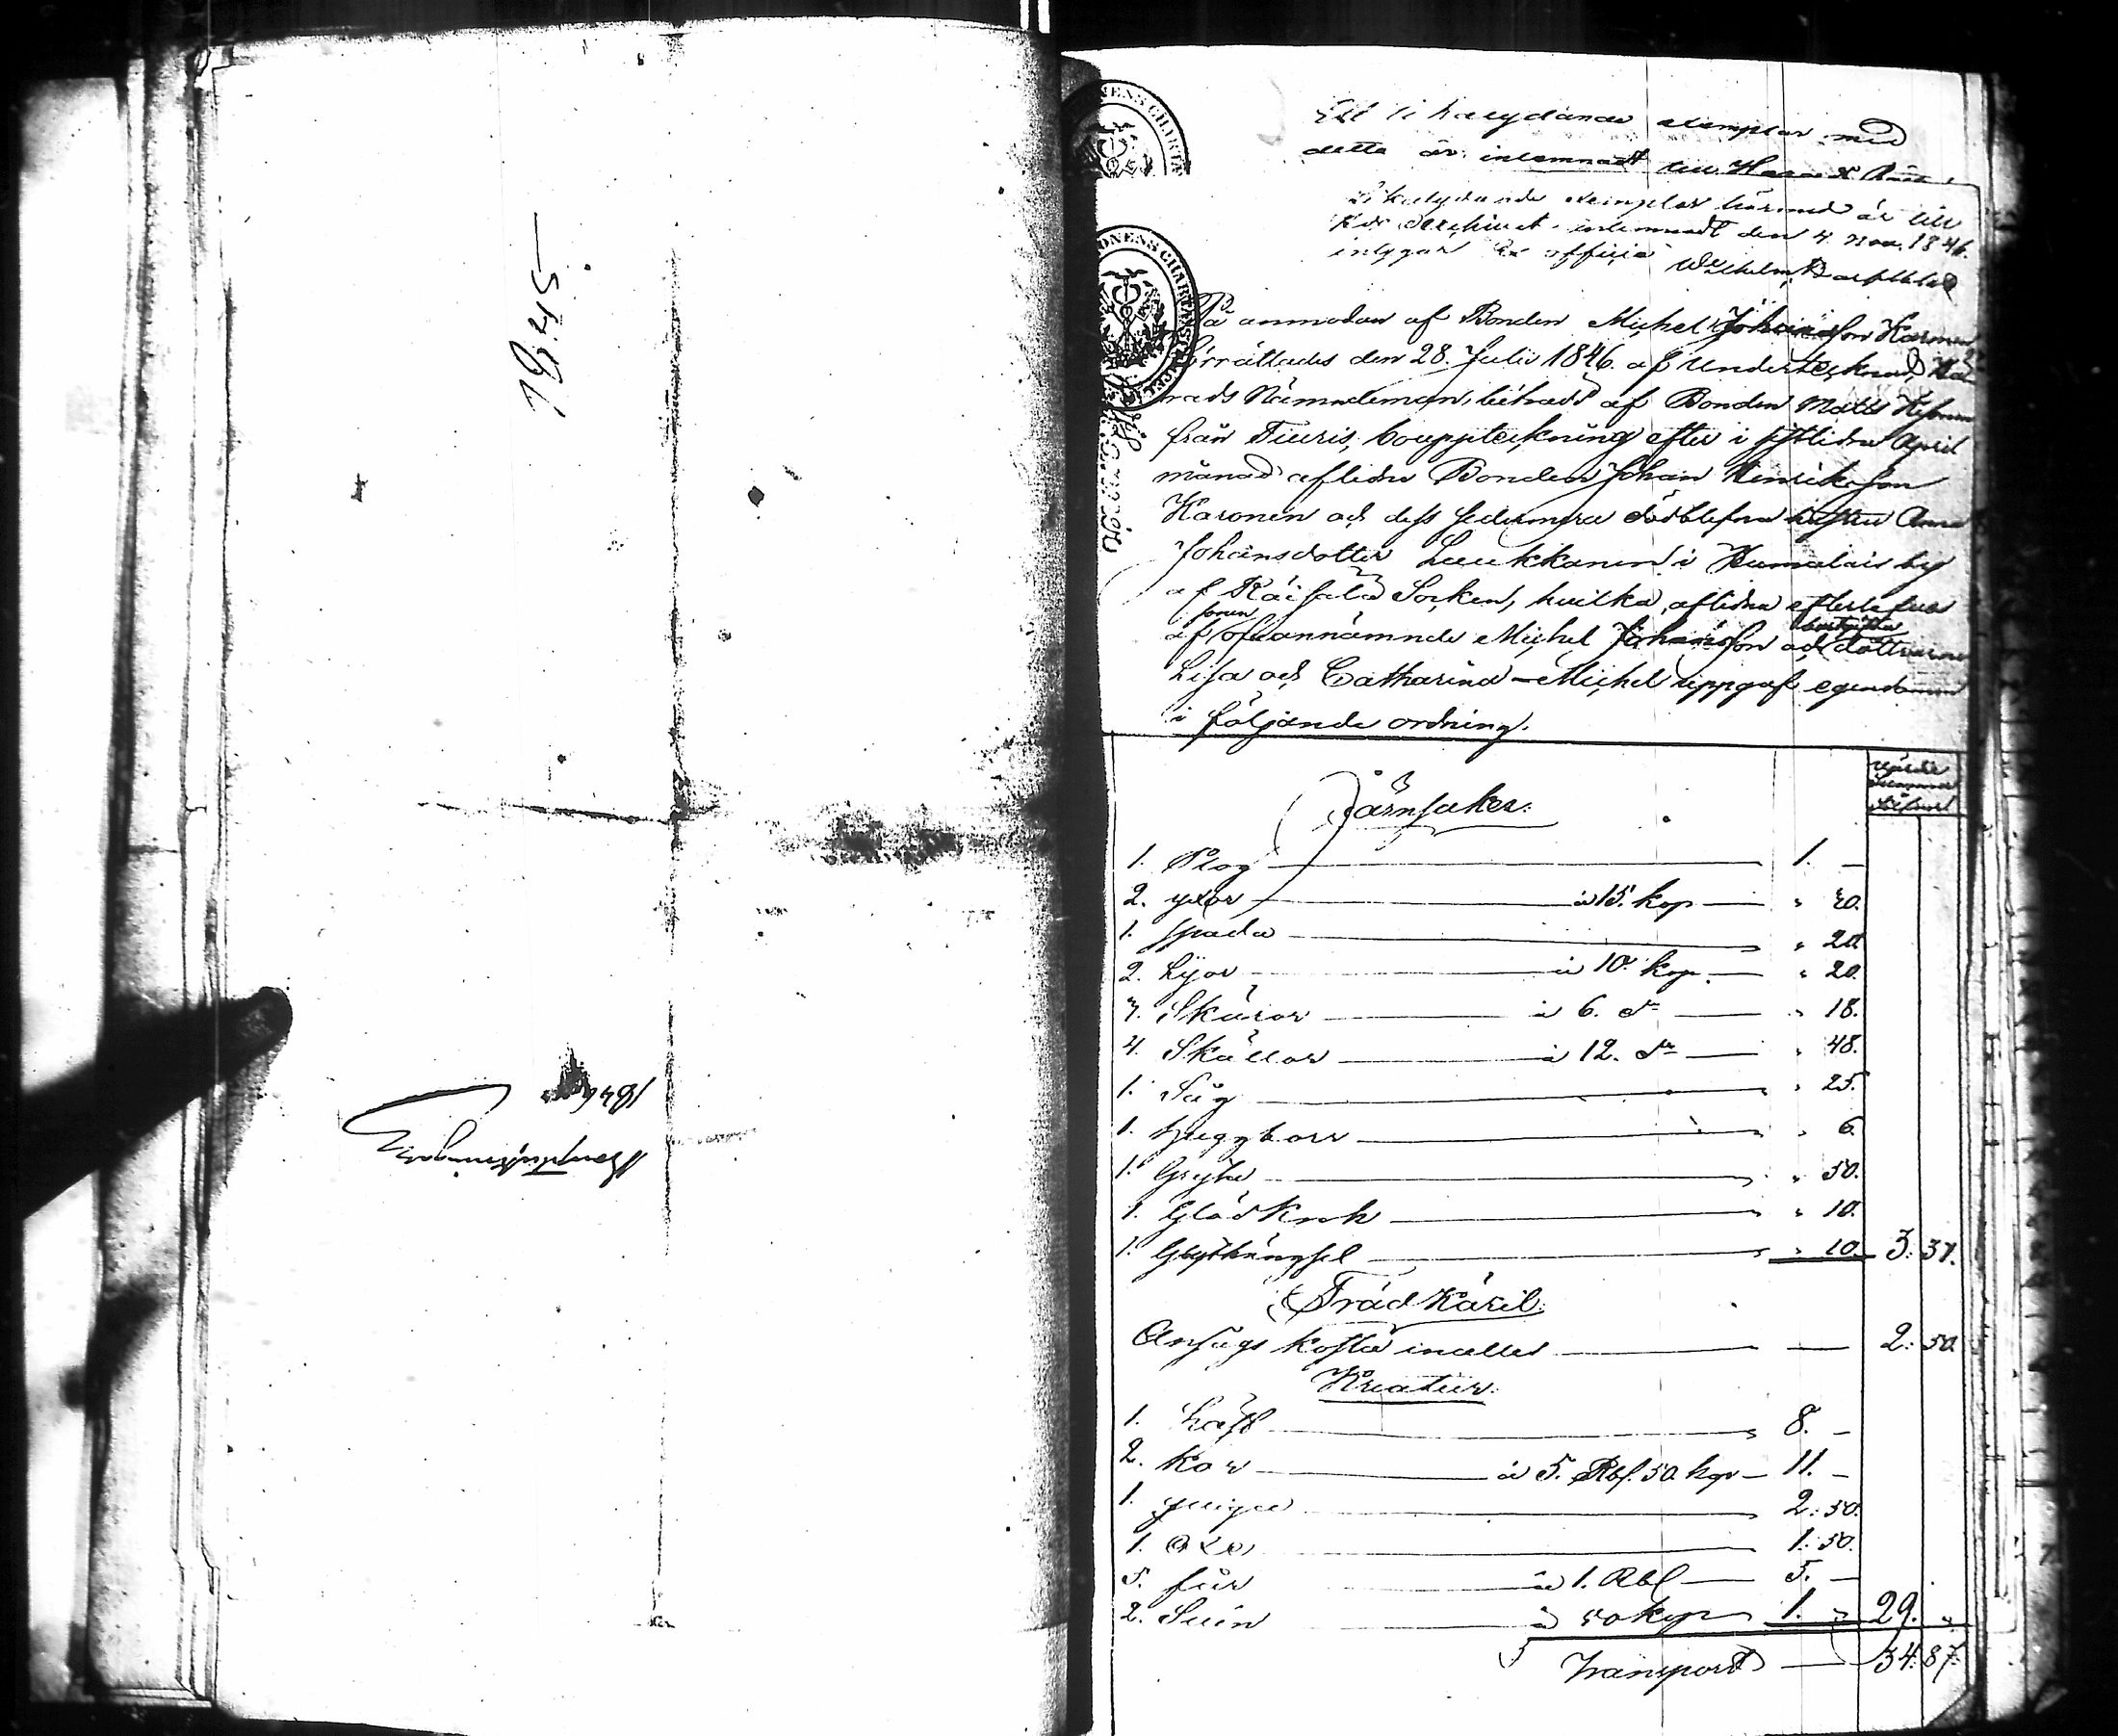 1845
1846
Bouppteckningar
Ett likalydande exemplar med
detta är inlemnadt till Härads Rätt,
Likalydande exemplar härmed är till
inlemnadt den 4 Nov. 1846.
intygar Ex officio Wilhelm
På anmodan af Bonden Michel Johansson Karonen
förrättades den 28. Julii 1846. af Undertecknad, Hä-
rads Nämndeman, biträdd af Bonden Matts
från Tiuris, bouppteckning efter i sistlidne April
månad aflidne Bonden Johan Henriksson
Karonen och dess sedermera dödblefne hustru Anna
Johansdotter Luukkanen i Humalais by
af Räisälä Socken, hvilka aflidne efterlefves
sonen
af ofvannämnde Michel Johansson och döttrarne
Lisa och Catharina - Michel uppgaf egendomen
i följande ordning.
Värde
Silfver
Järnsaker.
1. Plog 1. —
2. yxor à 15. kop " 30.
1. spada " 20
2. Lijor à 10. kop " 20.
3. Skäror à 6. do " 18.
4. Skällor à 12. do " 48.
1. Såg " 25.
1. huggborr " 6
1. Gryta " 50.
1. Glödkrok " 10.
1. Grythängsel " 10 3. 37.
Träd Käril.
Ansågs kosta inalles 2. 50.
Kreatur.
1. häst 8. —
2. Kor à 5. Rbl. 50 kop 11. —
1. qviga 2. 50.
1. Oxe 1. 50.
5. får à 1. Rbl 5. —
2. Svin à 50 kop 1. " 29. "
Transport 34. 87.